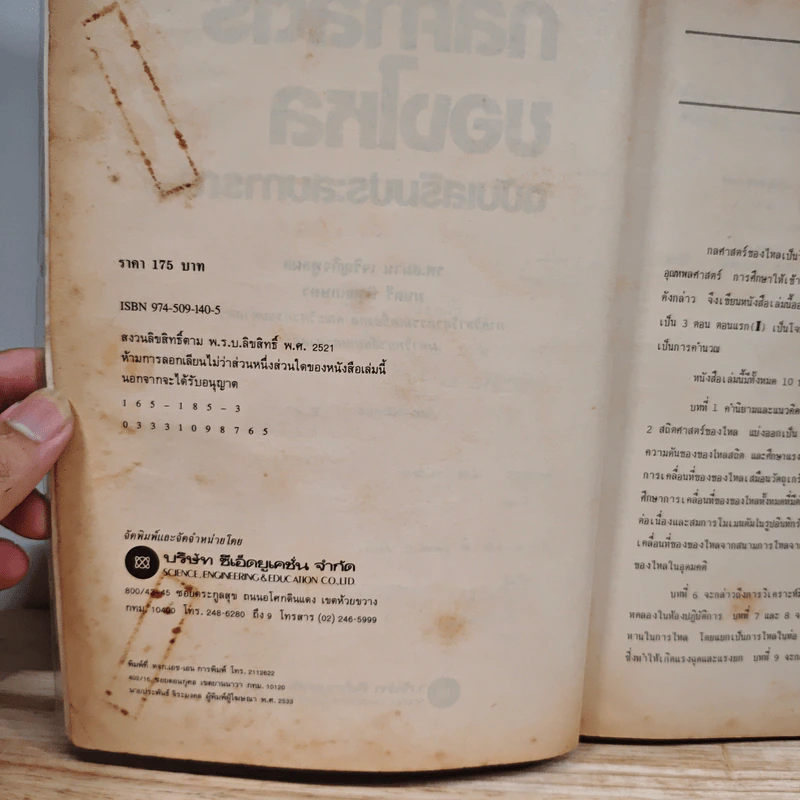 ราคา 175 บาท
ISBN 974-509-140-5
สงวนลิขสิทธิ์ตาม พ.ร.บ.ลิขสิทธิ์ พ.ศ. 2521
ห้ามการลอกเลียนไม่ว่าส่วนหนึ่งส่วนใดของหนังสือเล่มนี้
นอกจากจะได้รับอนุญาต
1 6 5 - 1 8 5 - 3
0 3 3 3 1 0 9 8 7 6 5
จัดพิมพ์และจัดจำหน่ายโดย
บริษัท ซีเอ็ดยูเคชั่น จำกัด
SCIENCE, ENGINEERING & EDUCATION CO.,LTD.
800/43-45 ซอยตระกูลสุข ถนนอโศกดินแดง เขตห้วยขวาง
กทม. 10400 โทร. 248-6280 ถึง 9 โทรสาร (02) 246-5999
พิมพ์ที่ หจก.เอช-เอน การพิมพ์ โทร. 2112622
เขตยานนาวา กทม. 10120
นายประพันธ์ จิระมงคล ผู้พิมพ์ผู้โฆษณา พ.ศ. 2533
กลศาสตร์ของไหลเป็น
อุณหพลศาสตร์ การศึกษาให้เข้า
ดังกล่าว จึงเขียนหนังสือเล่มนี้ออ
เป็น 3 ตอน ตอนแรก(I) เป็นโจ
เป็นการคำนวณ
หนังสือเล่มนี้มีทั้งหมด 10 บ
บทที่ 1 คำนิยามและแนวคิด
2 สถิตศาสตร์ของไหล แบ่งออกเป็น
ความดันของของไหลสถิต และศึกษาแรง
การเคลื่อนที่ของของไหลเสมือนวัตถุเกร็
ศึกษาการเคลื่อนที่ของของไหลทั้งหมดที่มีต
ต่อเนื่องและสมการโมเมนตัมในรูปอินทิกร
เคลื่อนที่ของของไหลจากสนามการไหลจา
ของไหลในอุดมคติ
บทที่ 6 จะกล่าวถึงการวิเคราะห์มิ
ทดลองในห้องปฏิบัติการ บทที่ 7 และ 8 จ
ทานในการไหล โดยแยกเป็นการไหลในท่อ
ซึ่งทำให้เกิดแรงฉุดและแรงยก บทที่ 9 จะก